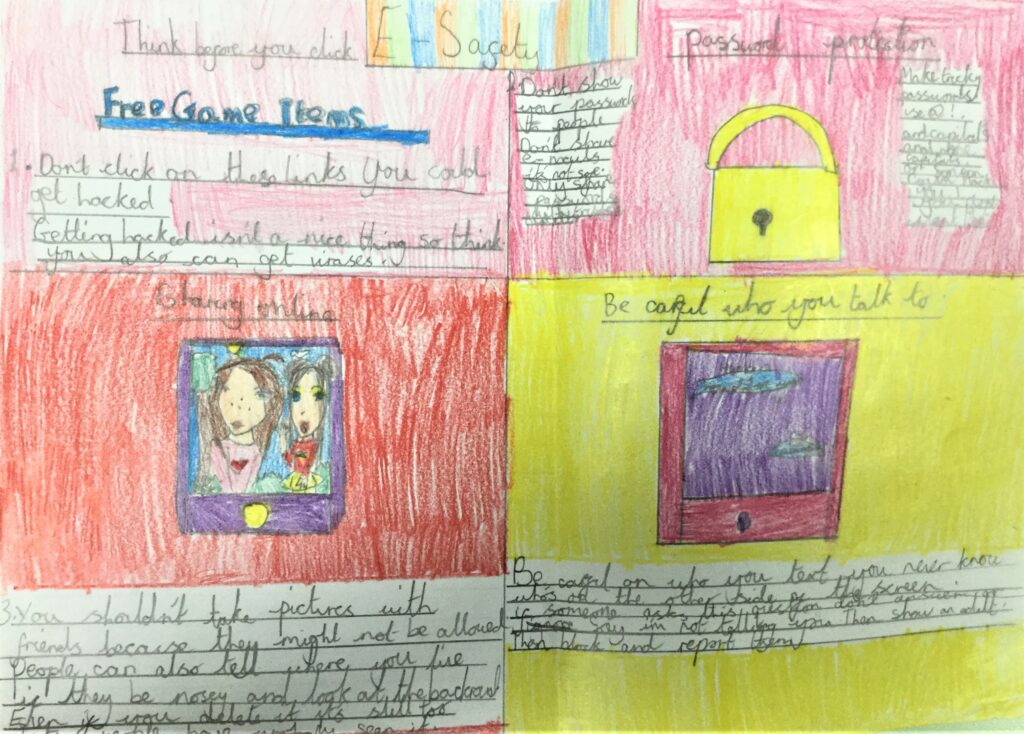 E-Sagety
Think before you click
Free Game Items
1. Don't click on these links you could
get hacked
Getting hacked isn't a nice thing so think
you also can get viruses.
password protection
2. Don't show
your password
to people
Don't share
it's not safe
only share
passwords
Make tricky
passwords
use @!,
and capitals
Sharing online
3. You shouldn't take pictures with
friends because they might not be allowed
People can also tell where you live
if they be nosey and look at the
Even if you delete it it's still too
seen it.
Be carful who you talk to
Hacker
Be carful on who you text you never know
who's on the other side of the screen
if someone asks this question don't answer or
say im not telling you Then show an adult
Then block and report them